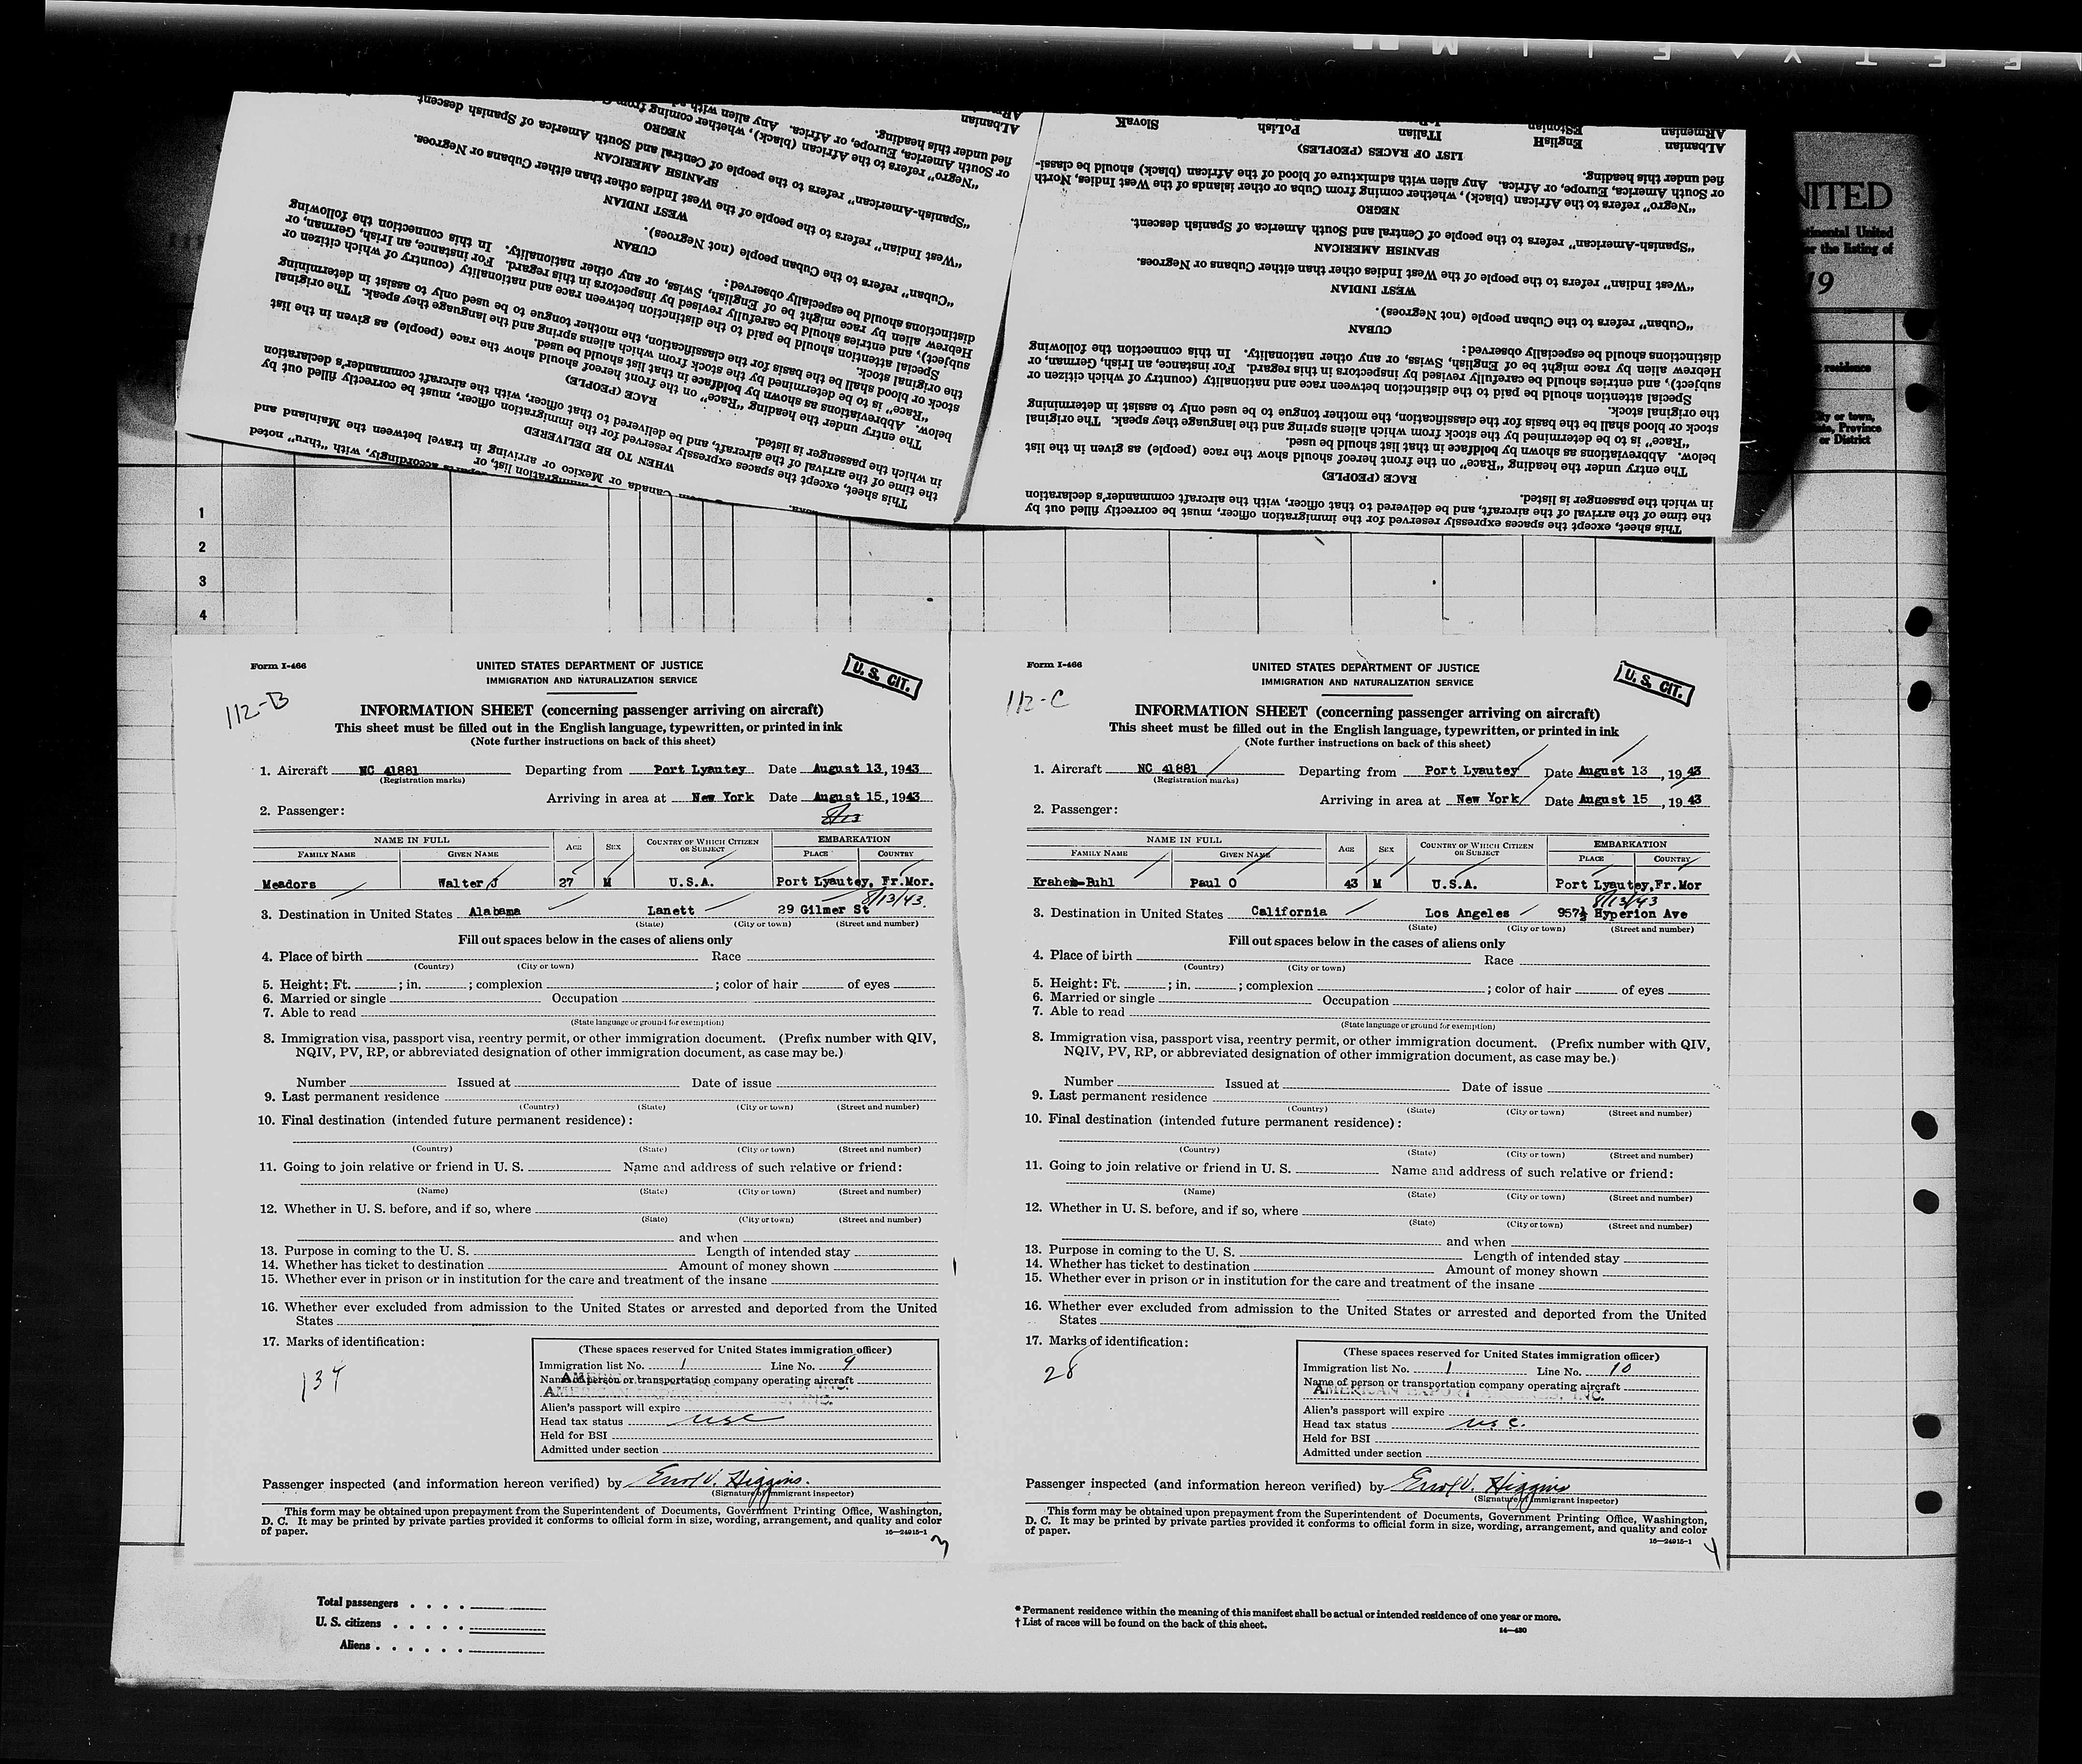 SAFETY FILM
Albanian
NEGRO
fied under this heading.
or South America, Europe, or Africa. Any alien with
"Negro" refers to the African (black), whether coming from
SPANISH AMERICAN
"Spanish-American" refers to the people of Central and South America of Spanish descent
WEST INDIAN
"West Indian" refers to the people of the West Indies other than either Cubans or Negroes.
CUBAN
"Cuban" refers to the Cuban people (not Negroes).
distinctions should be especially observed:
Hebrew alien by race might be of English, Swiss, or any other nationality. In this connection the following
subject), and entries should be carefully revised by inspectors in this regard. For instance, an Irish, German, or
Special attention should be paid to the distinction between race and nationality (country of which citizen or
the original stock.
stock or blood shall be the basis for the classification, the mother tongue to be used only to assist in determining
"Race" is to be determined by the stock from which aliens spring and the language they speak. The original
below. Abbreviations as shown by boldface in that list should be used.
The entry under the heading "Race" on the front hereof should show the race (people) as given in the list
RACE (PEOPLE)
in which the passenger is listed.
the time of the arrival of the aircraft, and be delivered to that officer, with the aircraft commander's declaration
This sheet, except the spaces expressly reserved for the immigration officer, must be correctly filled out by
WHEN TO BE DELIVERED
Canada or Mexico or arriving in travel between the Mainland and
accordingly, with "thru" noted
ARmenian EStonian ITalian POLish SlovaK
ALbanian EnglisH
LIST OF RACES (PEOPLES)
fied under this heading.
or South America, Europe, or Africa. Any alien with admixture of blood of the African (black) should be classi-
"Negro" refers to the African (black), whether coming from Cuba or other islands of the West Indies, North
NEGRO
"Spanish-American" refers to the people of Central and South America of Spanish descent.
SPANISH AMERICAN
"West Indian" refers to the people of the West Indies other than either Cubans or Negroes.
WEST INDIAN
"Cuban" refers to the Cuban people (not Negroes).
CUBAN
distinctions should be especially observed:
Hebrew alien by race might be of English, Swiss, or any other nationality. In this connection the following
subject), and entries should be carefully revised by inspectors in this regard. For instance, an Irish, German, or
Special attention should be paid to the distinction between race and nationality (country of which citizen or
the original stock.
stock or blood shall be the basis for the classification, the mother tongue to be used only to assist in determining
"Race" is to be determined by the stock from which aliens spring and the language they speak. The original
below. Abbreviations as shown by boldface in that list should be used.
The entry under the heading "Race" on the front hereof should show the race (people) as given in the list
RACE (PEOPLE)
in which the passenger is listed.
the time of the arrival of the aircraft, and be delivered to that officer, with the aircraft commander's declaration
This sheet, except the spaces expressly reserved for the immigration officer, must be correctly filled out by
NITED
tinental United
r the listing of
19
residence
ity or town,
te, Province
or District
1
2
3
4
Form I-466
UNITED STATES DEPARTMENT OF JUSTICE
IMMIGRATION AND NATURALIZATION SERVICE
U. S. CIT.
112-B
INFORMATION SHEET (concerning passenger arriving on aircraft)
This sheet must be filled out in the English language, typewritten, or printed in ink
(Note further instructions on back of this sheet)
1. Aircraft NC 41881 Departing from Port Lyautey Date August 13, 1943
(Registration marks)
Arriving in area at New York Date August 15, 1943
2. Passenger:
NAME IN FULL AGE SEX COUNTRY OF WHICH CITIZEN OR SUBJECT EMBARKATION
FAMILY NAME GIVEN NAME PLACE COUNTRY
Meadors Walter J 27 M U.S.A. Port Lyautey, Fr.Mor.
8/13/43.
3. Destination in United States Alabama Lanett 29 Gilmer St
(State) (City or town) (Street and number)
Fill out spaces below in the cases of aliens only
4. Place of birth Race
(Country) (City or town)
5. Height: Ft. ; in. ; complexion ; color of hair of eyes
6. Married or single Occupation
7. Able to read
(State language or ground for exemption)
8. Immigration visa, passport visa, reentry permit, or other immigration document. (Prefix number with QIV,
NQIV, PV, RP, or abbreviated designation of other immigration document, as case may be.)
Number Issued at Date of issue
9. Last permanent residence
(Country) (State) (City or town) (Street and number)
10. Final destination (intended future permanent residence):
(Country) (State) (City or town) (Street and number)
11. Going to join relative or friend in U. S. Name and address of such relative or friend:
(Name) (State) (City or town) (Street and number)
12. Whether in U. S. before, and if so, where
(State) (City or town) (Street and number)
and when
13. Purpose in coming to the U. S. Length of intended stay
14. Whether has ticket to destination Amount of money shown
15. Whether ever in prison or in institution for the care and treatment of the insane
16. Whether ever excluded from admission to the United States or arrested and deported from the United
States
17. Marks of identification:
134
(These spaces reserved for United States immigration officer)
Immigration list No. 1 Line No. 9
Name of person or transportation company operating aircraft
AMERICAN EXPORT AIRLINES, INC.
Alien's passport will expire
Head tax status usc
Held for BSI
Admitted under section
Passenger inspected (and information hereon verified) by Errol V. Higgins.
(Signature of immigrant inspector)
This form may be obtained upon prepayment from the Superintendent of Documents, Government Printing Office, Washington,
D. C. It may be printed by private parties provided it conforms to official form in size, wording, arrangement, and quality and color
of paper.
16—24915-1
3
Form I-466
UNITED STATES DEPARTMENT OF JUSTICE
IMMIGRATION AND NATURALIZATION SERVICE
U. S. CIT.
112-C
INFORMATION SHEET (concerning passenger arriving on aircraft)
This sheet must be filled out in the English language, typewritten, or printed in ink
(Note further instructions on back of this sheet)
1. Aircraft NC 41881 Departing from Port Lyautey Date August 13, 1943
(Registration marks)
Arriving in area at New York Date August 15, 1943
2. Passenger:
NAME IN FULL AGE SEX COUNTRY OF WHICH CITIZEN OR SUBJECT EMBARKATION
FAMILY NAME GIVEN NAME PLACE COUNTRY
Kraheb-Buhl Paul O 43 M U.S.A. Port Lyautey, Fr.Mor
8/13/43
3. Destination in United States California Los Angeles 957½ Hyperion Ave
(State) (City or town) (Street and number)
Fill out spaces below in the cases of aliens only
4. Place of birth Race
(Country) (City or town)
5. Height: Ft. ; in. ; complexion ; color of hair of eyes
6. Married or single Occupation
7. Able to read
(State language or ground for exemption)
8. Immigration visa, passport visa, reentry permit, or other immigration document. (Prefix number with QIV,
NQIV, PV, RP, or abbreviated designation of other immigration document, as case may be.)
Number Issued at Date of issue
9. Last permanent residence
(Country) (State) (City or town) (Street and number)
10. Final destination (intended future permanent residence):
(Country) (State) (City or town) (Street and number)
11. Going to join relative or friend in U. S. Name and address of such relative or friend:
(Name) (State) (City or town) (Street and number)
12. Whether in U. S. before, and if so, where
(State) (City or town) (Street and number)
and when
13. Purpose in coming to the U. S. Length of intended stay
14. Whether has ticket to destination Amount of money shown
15. Whether ever in prison or in institution for the care and treatment of the insane
16. Whether ever excluded from admission to the United States or arrested and deported from the United
States
17. Marks of identification:
28
(These spaces reserved for United States immigration officer)
Immigration list No. 1 Line No. 10
Name of person or transportation company operating aircraft
AMERICAN EXPORT AIRLINES, INC.
Alien's passport will expire
Head tax status usc.
Held for BSI
Admitted under section
Passenger inspected (and information hereon verified) by Errol V. Higgins
(Signature of immigrant inspector)
This form may be obtained upon prepayment from the Superintendent of Documents, Government Printing Office, Washington,
D. C. It may be printed by private parties provided it conforms to official form in size, wording, arrangement, and quality and color
of paper.
16—24915-1
4
Total passengers
U. S. citizens
Aliens
* Permanent residence within the meaning of this manifest shall be actual or intended residence of one year or more.
† List of races will be found on the back of this sheet.
14—480